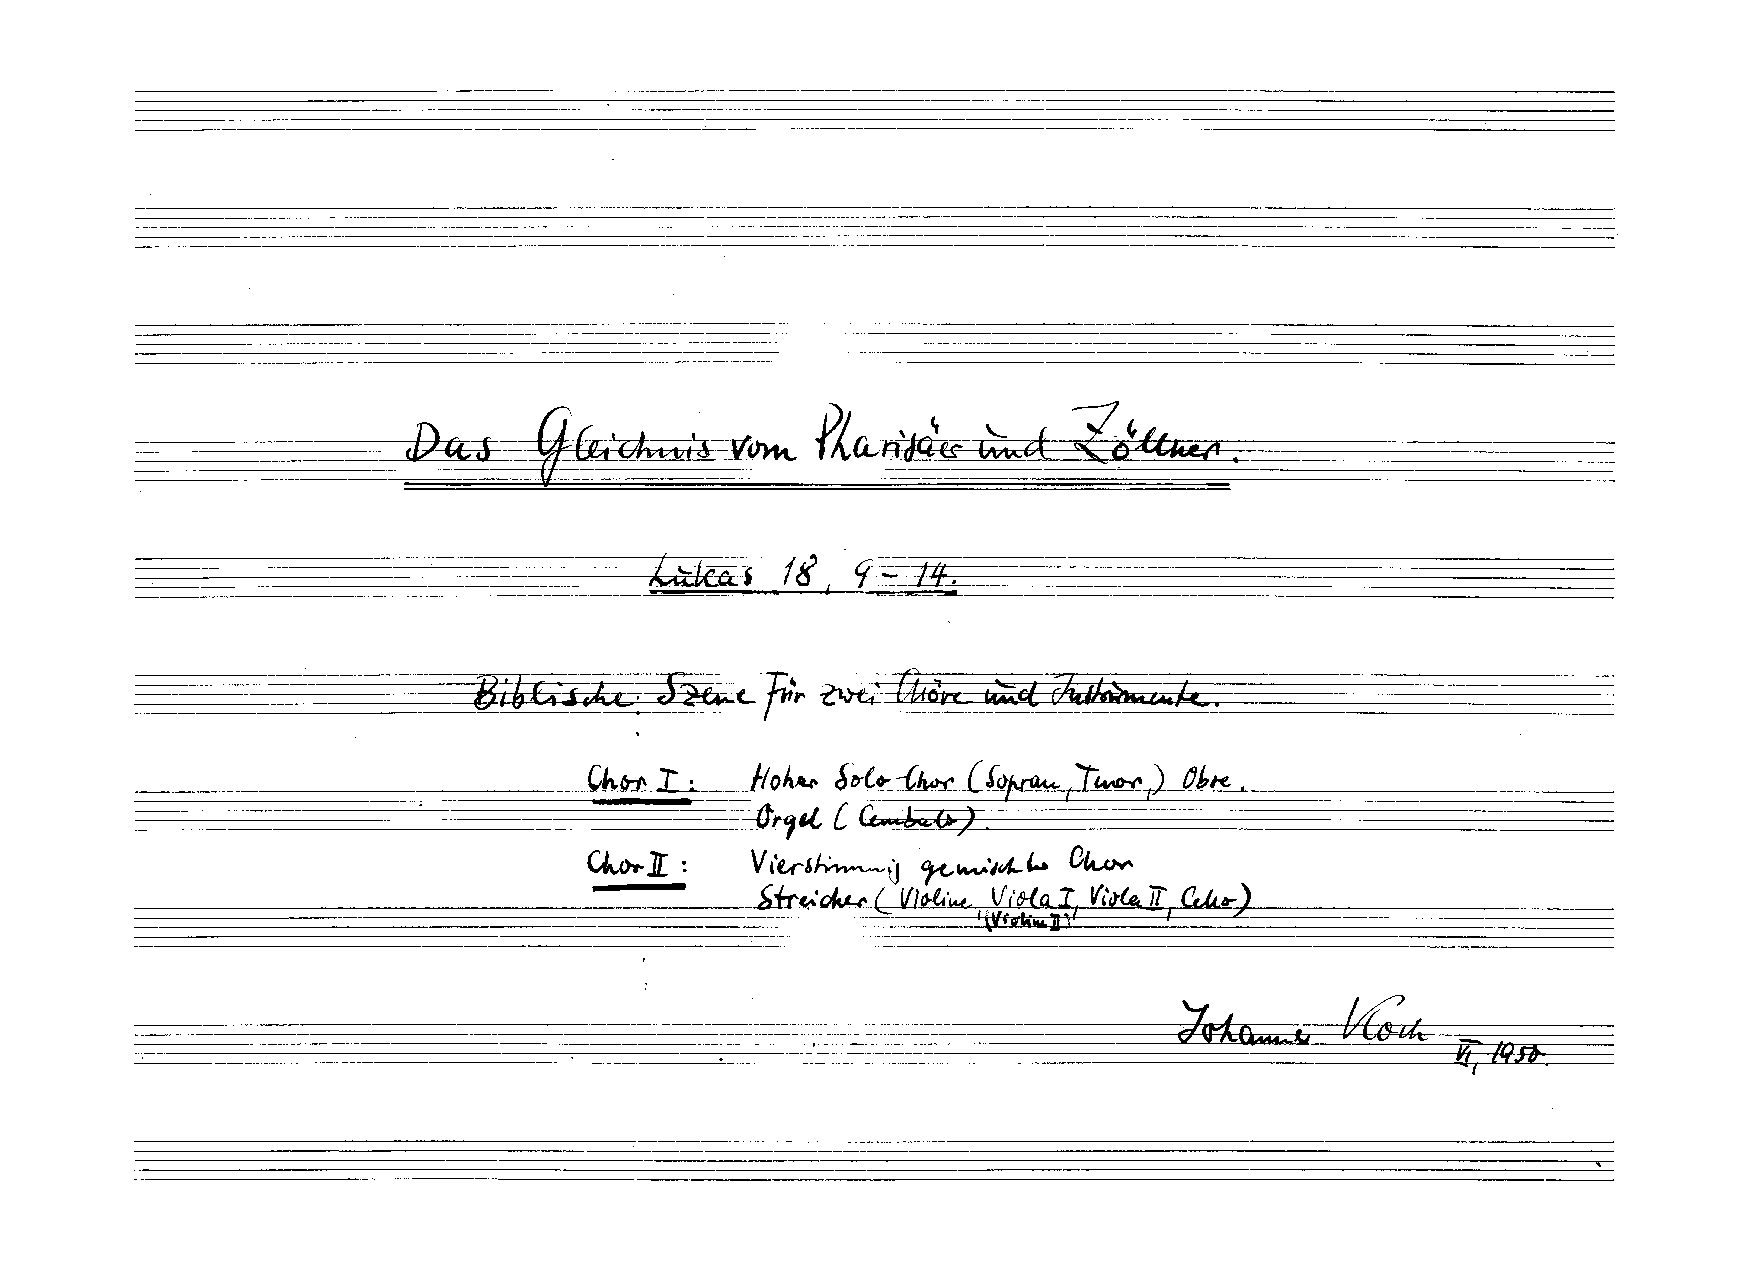 Das Gleichnis vom Pharisäer und Zöllner.
Lukas 18, 9 – 14.
Biblische Szene für zwei Chöre und Instrumente.
Chor I: Hoher Solo-Chor (Sopran, Tenor,) Oboe.
Orgel (Cembalo).
Chor II: Vierstimmig gemischter Chor
Streicher (Violine Viola I, Viola II, Cello)
(Violine II)
Johannes Koch
VI, 1950.